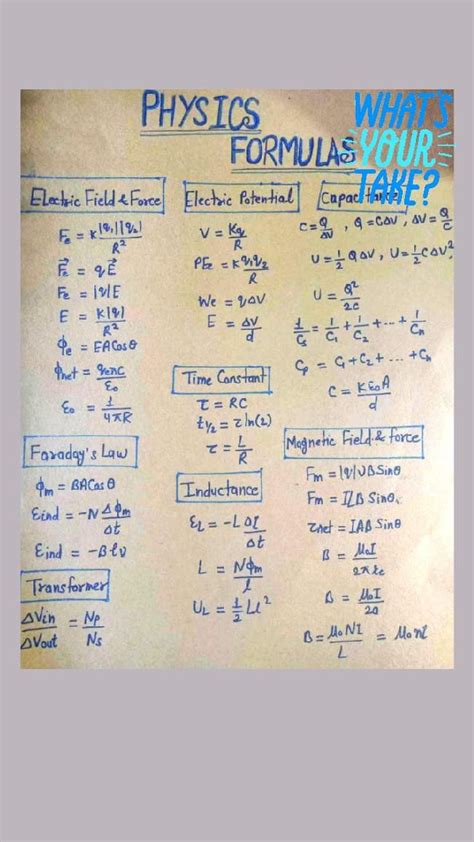 PHYSICS
FORMULAS
WHAT'S
YOUR
TAKE?
Electric Field & Force
Fe = K|q₁||q₂|/R²
F⃗e = qE⃗
Fe = |q|E
E = K|q|/R²
ϕe = EACosθ
ϕnet = qenc/ε₀
ε₀ = 1/4πR
Faraday's Law
ϕm = BACosθ
Eind = -N Δϕm/Δt
Eind = -Blv
Transformer
ΔVin/ΔVout = Np/Ns
Electric Potential
V = Kq/R
PEe = K q₁q₂/R
We = qΔV
E = ΔV/d
Time Constant
τ = RC
t₁/₂ = τ ln(2)
τ = L/R
Inductance
εL = -L ΔI/Δt
L = Nϕm/l
UL = ½ LI²
C = Q/ΔV , Q = CΔV , ΔV = Q/C
U = ½ QΔV , U = ½ CΔV²
U = Q²/2C
1/Cs = 1/C₁ + 1/C₂ + ... + 1/Cn
Cp = C₁ + C₂ + ... + Cn
C = Kε₀A/d
Magnetic Field & force
Fm = |q|VB Sinθ
Fm = ILB Sinθ
τnet = IAB Sinθ
B = μ₀I/2πr
B = μ₀I/2a
B = μ₀NI/L = μ₀nI